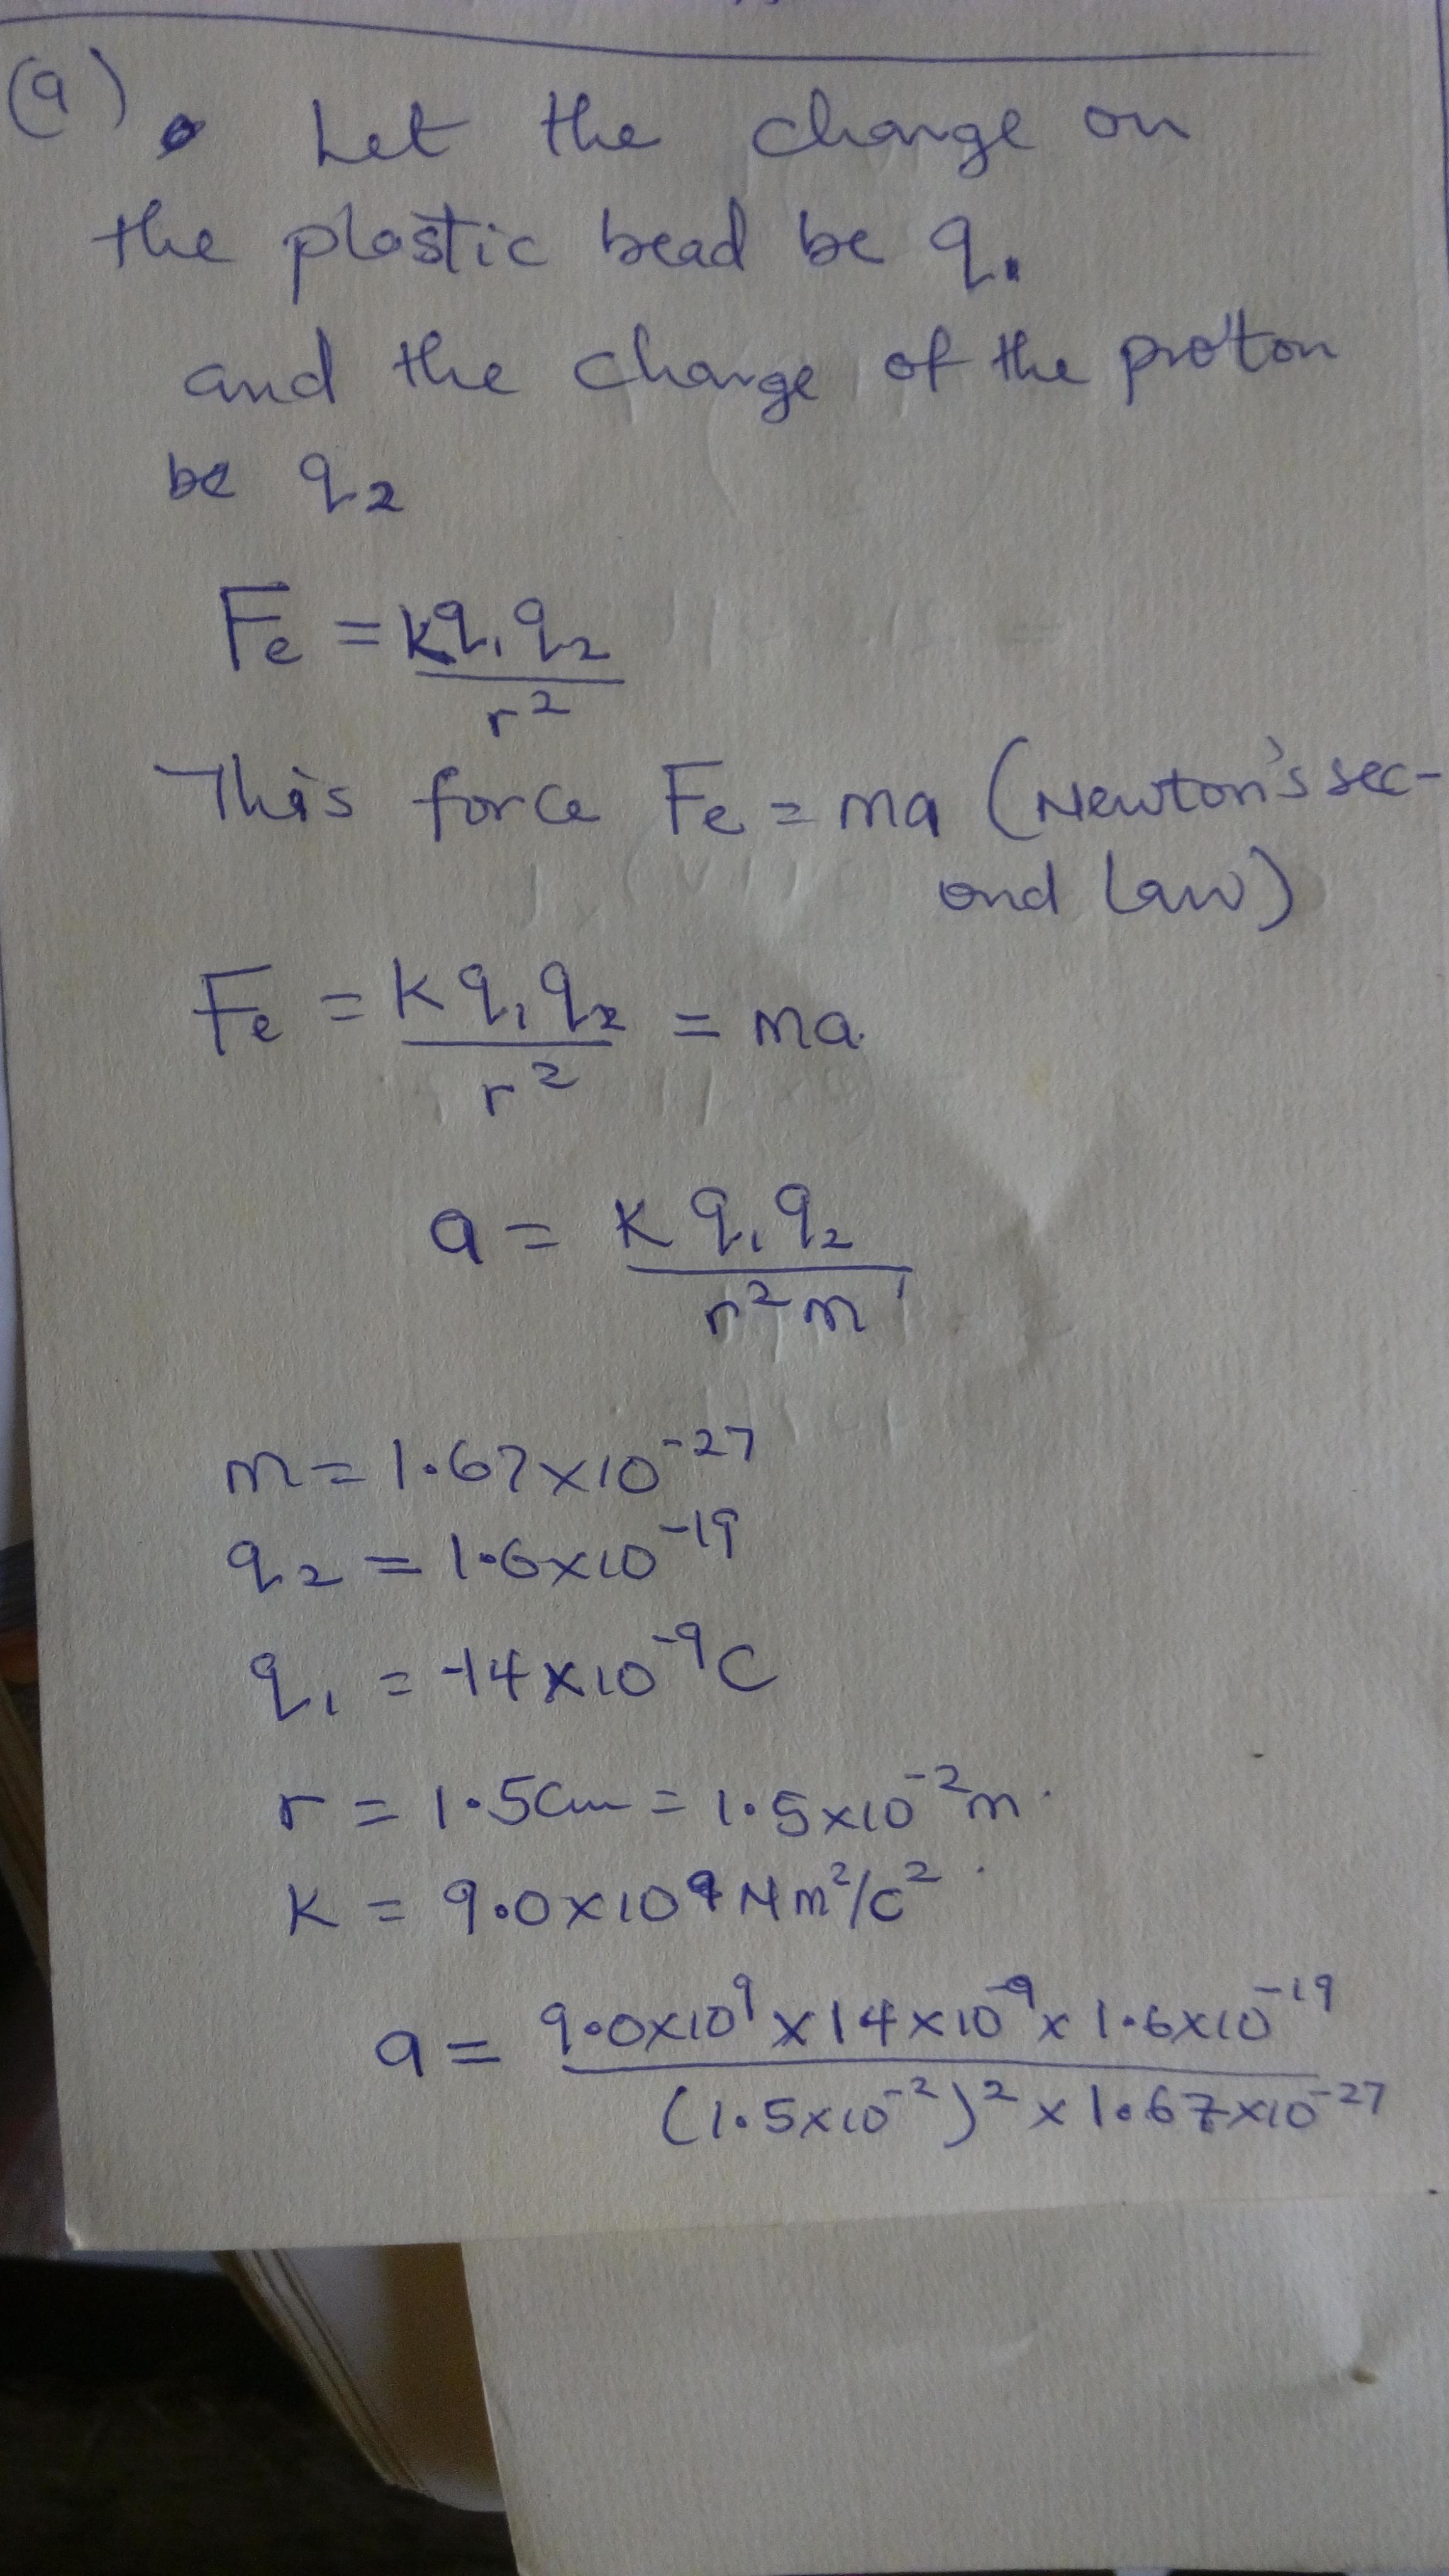 (a). Let the charge on
the plastic bead be q₁
and the charge of the proton
be q₂
Fe = kq₁q₂
r²
This force Fe = ma (Newton's sec-
ond law)
Fe = Kq₁q₂ = ma.
r²
a = K q₁q₂
r²m
m = 1.67×10⁻²⁷
q₂ = 1.6×10⁻¹⁹
q₁ = -14×10⁻⁹C
r = 1.5cm = 1.5×10⁻²m.
K = 9.0×10⁹Nm²/c².
a = 9.0×10⁹ × 14×10⁻⁹ × 1.6×10⁻¹⁹
(1.5×10⁻²)² × 1.67×10⁻²⁷